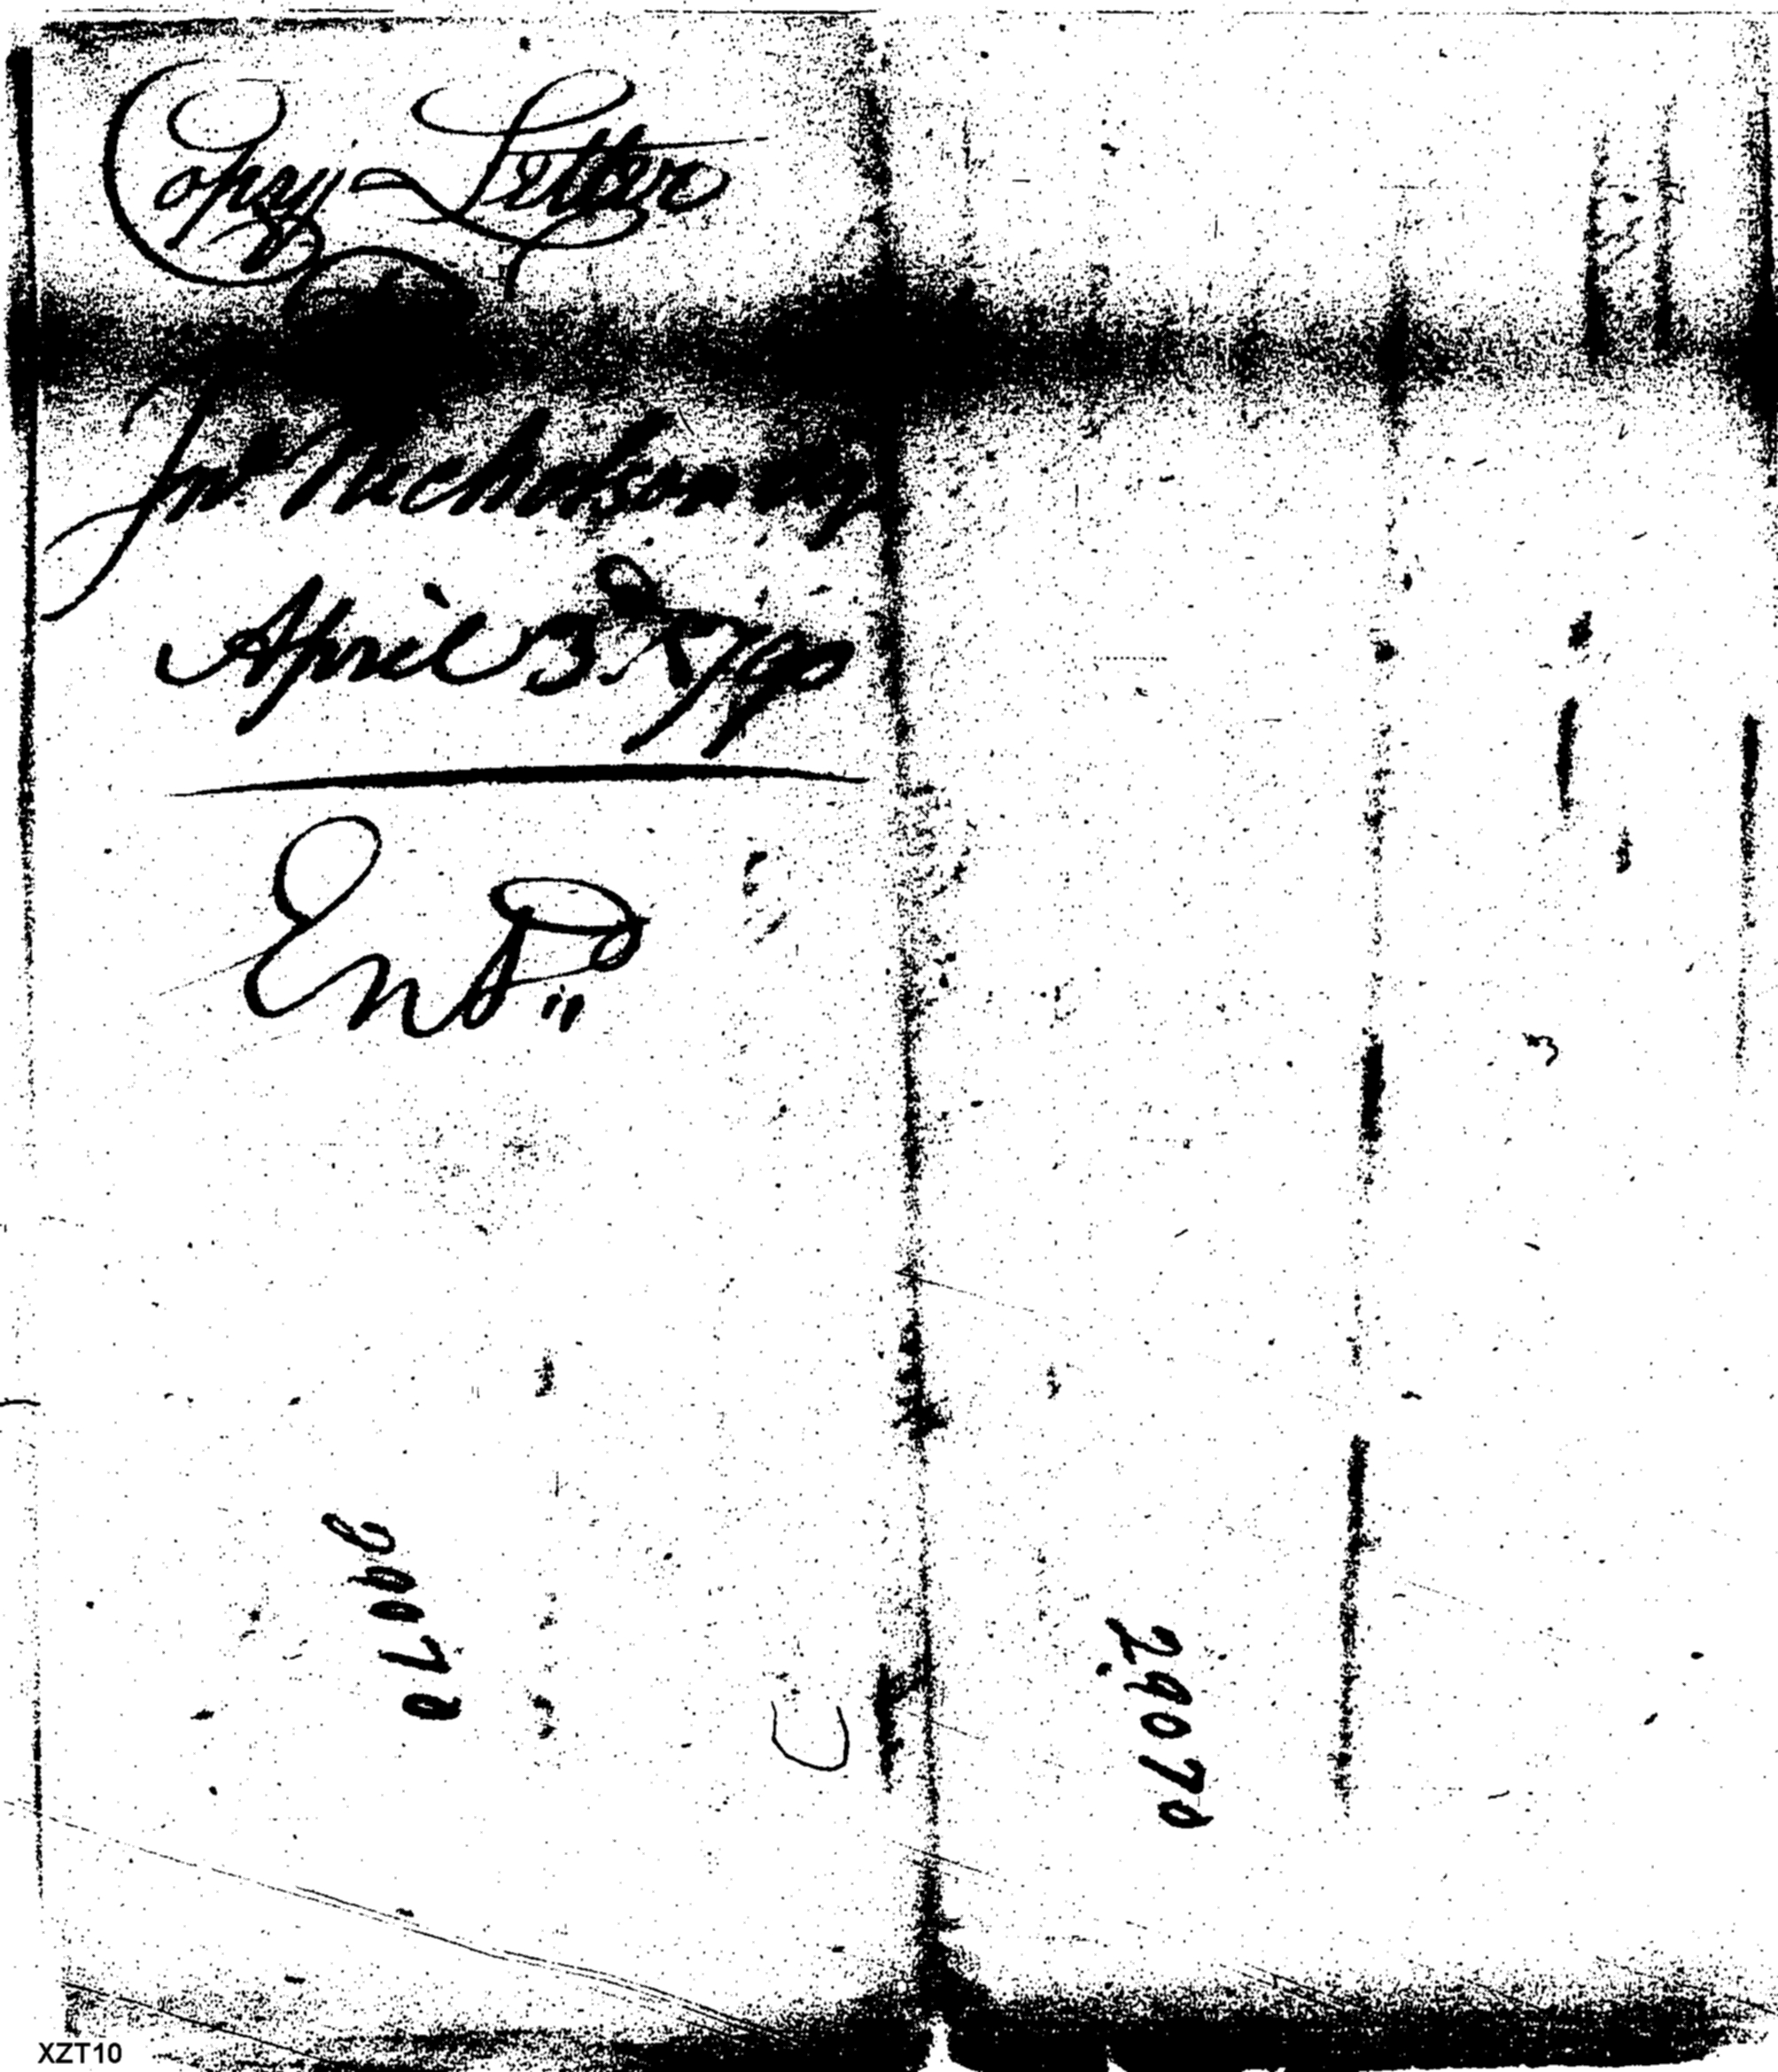 Copy Letter
Jno Nicholson esq
April 3d 1790
Entd
29070
29070
XZT10